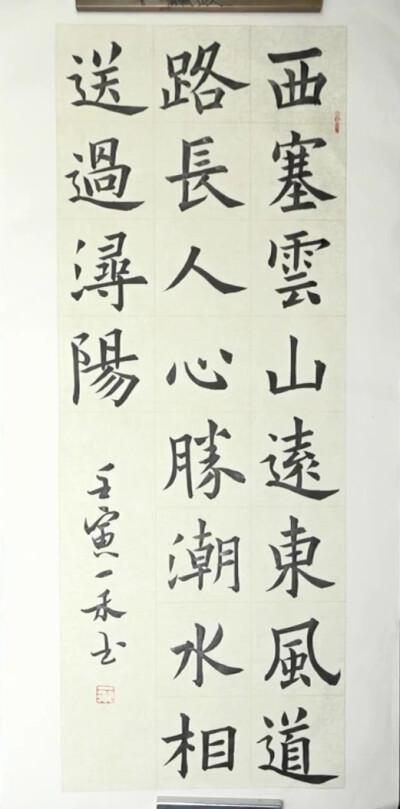 西塞雲山遠東風道
路長人心勝潮水相
送過潯陽
壬寅一禾书